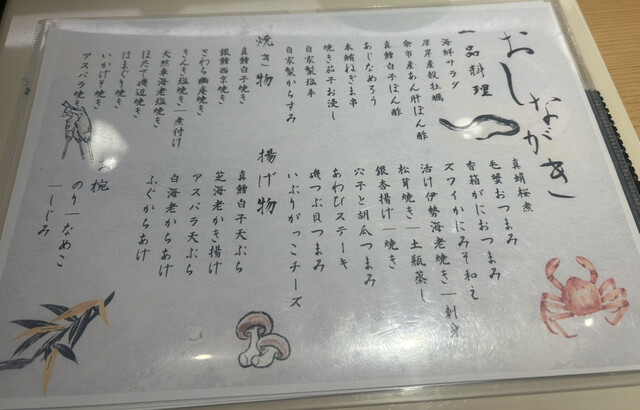 おしながき
一品料理
海鮮サラダ
厚岸産殻牡蠣
余市産あん肝ぽん酢
真鱈白子ぽん酢
あじなめろう
本鮪ねぎま串
焼き茄子お浸し
自家製塩辛
自家製からすみ
真蛸桜煮
毛蟹おつまみ
香箱がにおつまみ
ズワイかにみそ和え
活け伊勢海老焼き―刺身
松茸焼き―土瓶蒸し
銀杏揚げ―焼き
穴子と胡瓜つまみ
あわびステーキ
磯つぶ貝つまみ
いぶりがっこチーズ
焼き物
真鱈白子焼き
銀鱈西京焼き
さわら幽庵焼き
きんき塩焼き―煮付け
天然車海老塩焼き
ほたて磯辺焼き
はまぐり焼き
いかげそ焼き
アスパラ焼き
揚げ物
真鱈白子天ぷら
芝海老かき揚げ
アスパラ天ぷら
白海老からあげ
ふぐからあげ
お椀
のり―なめこ
―しじみ